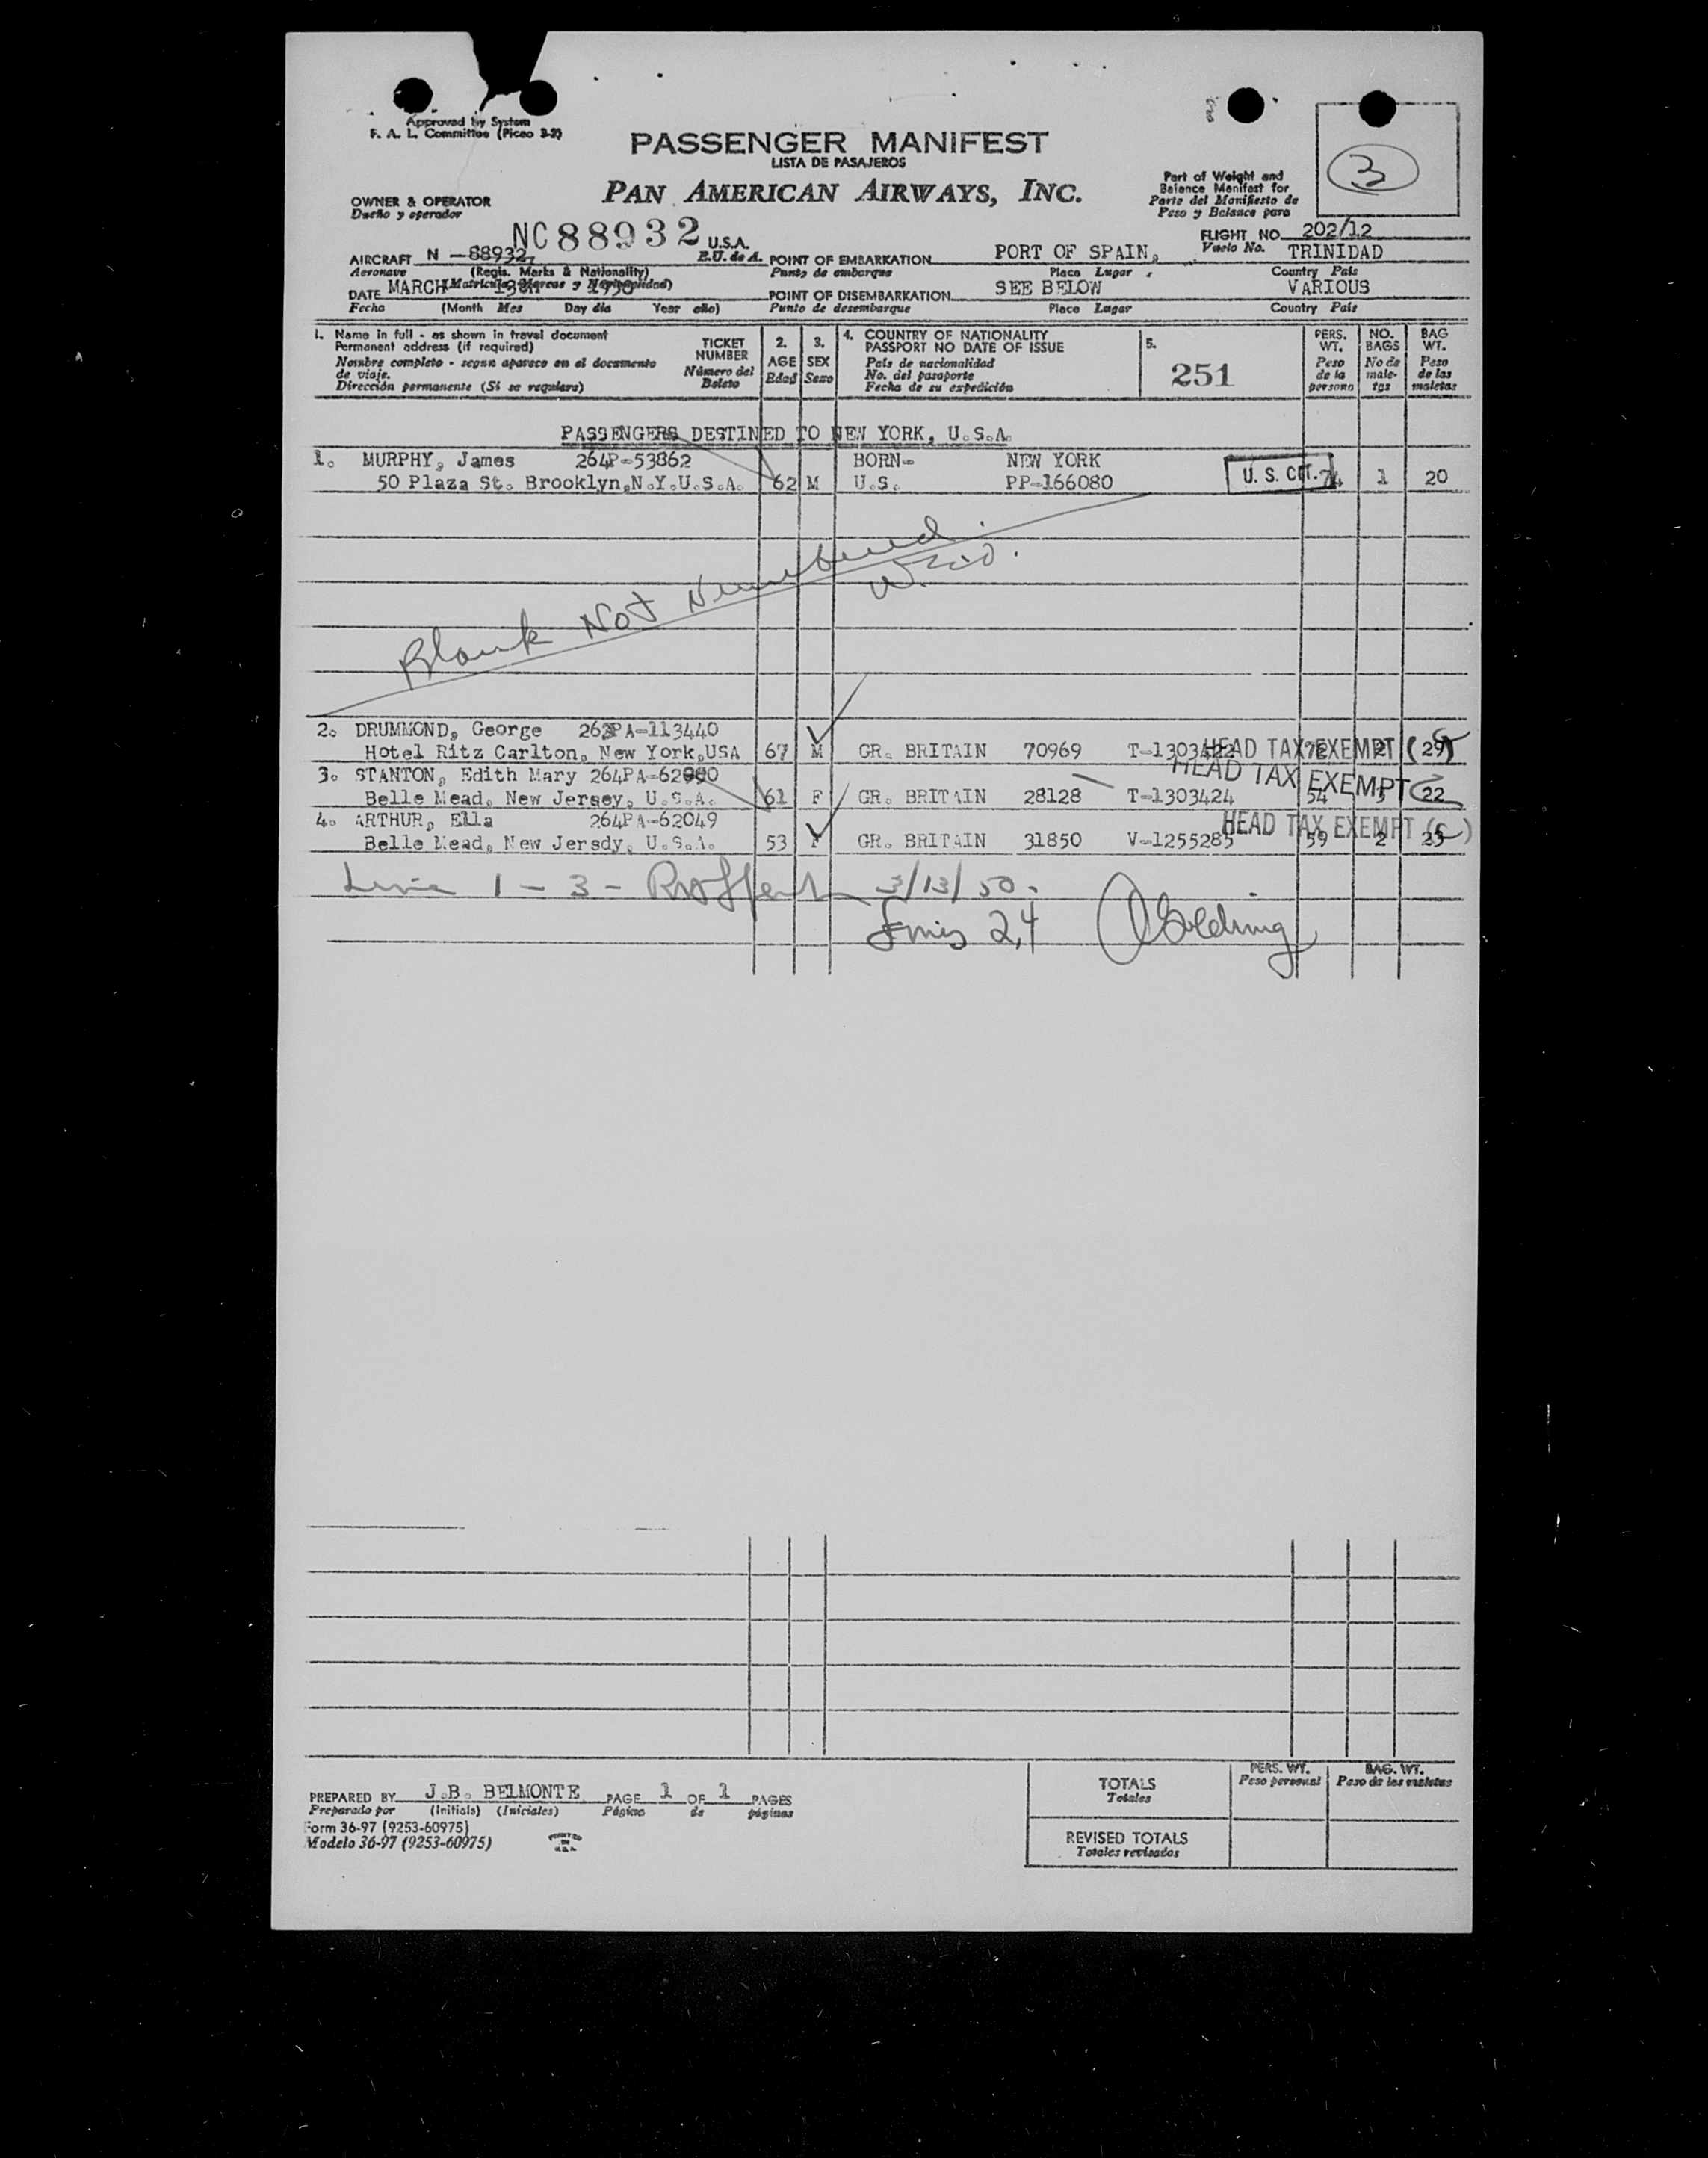 Approved by System
F. A. L. Committee (Picao 3-2)
3
PASSENGER MANIFEST
LISTA DE PASAJEROS
PAN AMERICAN AIRWAYS, INC.
Part of Weight and
Balance Manifest for
Parte del Manifiesto de
Peso y Balance para
OWNER & OPERATOR
Dueño y operador
FLIGHT NO. 202/12
Vuelo No.
NC88932 U.S.A.
E.U. de A.
AIRCRAFT N -88932
Aeronave (Regis. Marks & Nationality)
POINT OF EMBARKATION PORT OF SPAIN, TRINIDAD
Punto de embarque Place Lugar Country País
DATE MARCH 1950
Fecha (Month Mes Day día Year año)
POINT OF DISEMBARKATION SEE BELOW VARIOUS
Punto de desembarque Place Lugar Country País
1. Name in full - as shown in travel document
Permanent address (if required)
Nombre completo - segun aparece en el documento
de viaje.
Dirección permanente (Si se requiere)
TICKET
NUMBER
Número del
Boleto
2.
AGE
Edad
3.
SEX
Sexo
4. COUNTRY OF NATIONALITY
PASSPORT NO DATE OF ISSUE
País de nacionalidad
No. del pasaporte
Fecha de su expedición
5.
251
PERS.
WT.
Peso
de la
persona
NO.
BAGS
No de
male-
tas
BAG
WT.
Peso
de las
maletas
PASSENGERS DESTINED TO NEW YORK, U.S.A.
1. MURPHY, James 264P-53862 BORN- NEW YORK
50 Plaza St. Brooklyn,N.Y.U.S.A. 62 M U.S. PP-166080 U. S. CIT. 74 1 20
Blank Not Numbered
2. DRUMMOND, George 263PA-113440
Hotel Ritz Carlton, New York,USA 67 M GR. BRITAIN 70969 T-1303422 HEAD TAX EXEMPT 72 2 29
3. STANTON, Edith Mary 264PA-62050 HEAD TAX EXEMPT
Belle Mead, New Jersey, U.S.A. 61 F GR. BRITAIN 28128 T-1303424 54 3 22
4. ARTHUR, Ella 264PA-62049 HEAD TAX EXEMPT
Belle Mead, New Jersdy, U.S.A. 53 F GR. BRITAIN 31850 V-1255285 59 2 23
Line 1 - 3 - 3/13/50.
Lines 2,4 Golding
PREPARED BY J.B. BELMONTE PAGE 1 OF 1 PAGES
Preparado por (Initials) (Iniciales) Página de páginas
Form 36-97 (9253-60975)
Modelo 36-97 (9253-60975)
PRINTED
IN
U.S.A.
PERS. WT.
Peso personal
BAG. WT.
Peso de las maletas
TOTALS
Totales
REVISED TOTALS
Totales revisados